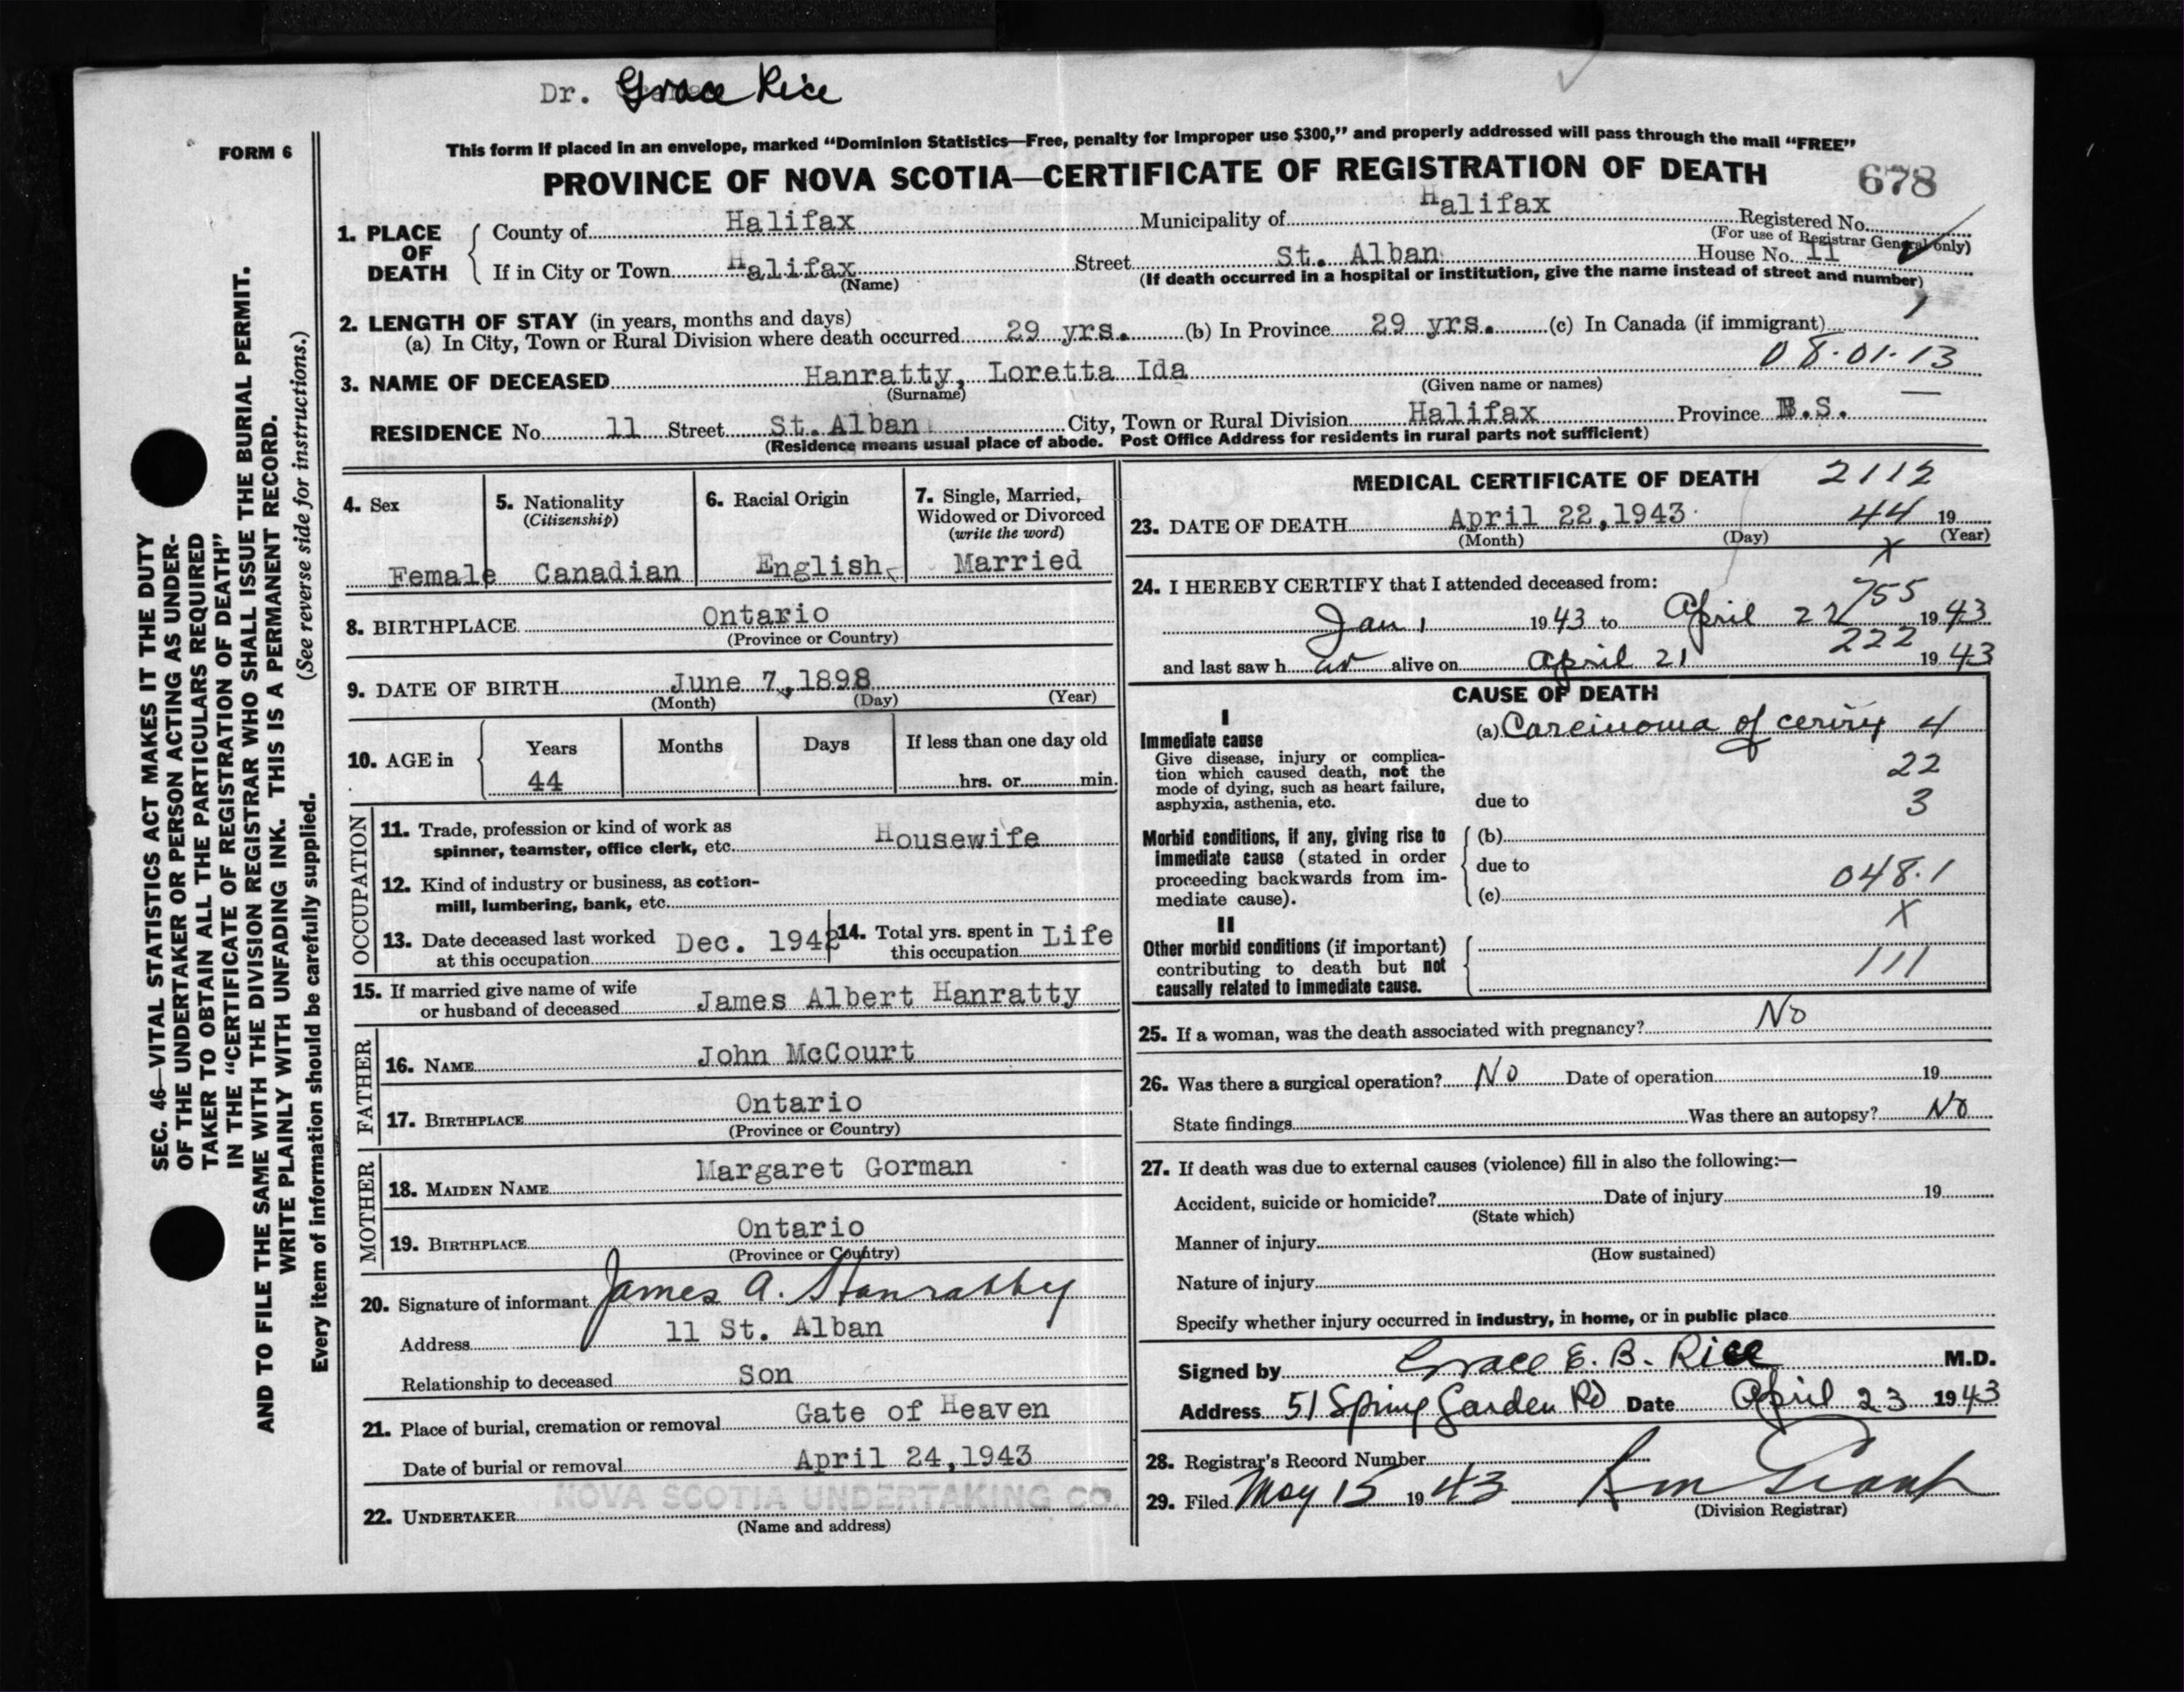 Dr. Grace Rice
FORM 6
This form if placed in an envelope, marked “Dominion Statistics—Free, penalty for improper use $300,” and properly addressed will pass through the mail “FREE”
PROVINCE OF NOVA SCOTIA—CERTIFICATE OF REGISTRATION OF DEATH 678
1. PLACE OF DEATH
County of Halifax Municipality of Halifax Registered No.
(For use of Registrar General only)
If in City or Town Halifax Street St. Alban House No. 11
(Name) (If death occurred in a hospital or institution, give the name instead of street and number)
2. LENGTH OF STAY (in years, months and days)
(a) In City, Town or Rural Division where death occurred 29 yrs. (b) In Province 29 yrs. (c) In Canada (if immigrant)
08.01.13
3. NAME OF DECEASED Hanratty, Loretta Ida
(Surname) (Given name or names)
RESIDENCE No. 11 Street St. Alban City, Town or Rural Division Halifax Province N.S.
(Residence means usual place of abode. Post Office Address for residents in rural parts not sufficient)
4. Sex
Female
5. Nationality
(Citizenship)
Canadian
6. Racial Origin
English
7. Single, Married,
Widowed or Divorced
(write the word)
Married
8. BIRTHPLACE Ontario
(Province or Country)
9. DATE OF BIRTH June 7, 1898
(Month) (Day) (Year)
10. AGE in
Years Months Days If less than one day old
44 hrs. or min.
OCCUPATION
11. Trade, profession or kind of work as
spinner, teamster, office clerk, etc. Housewife
12. Kind of industry or business, as cotton-
mill, lumbering, bank, etc.
13. Date deceased last worked
at this occupation Dec. 1942
14. Total yrs. spent in
this occupation Life
15. If married give name of wife
or husband of deceased James Albert Hanratty
FATHER
16. NAME John McCourt
17. BIRTHPLACE Ontario
(Province or Country)
MOTHER
18. MAIDEN NAME Margaret Gorman
19. BIRTHPLACE Ontario
(Province or Country)
20. Signature of informant James A. Hanratty
Address 11 St. Alban
Relationship to deceased Son
21. Place of burial, cremation or removal Gate of Heaven
Date of burial or removal April 24, 1943
22. UNDERTAKER NOVA SCOTIA UNDERTAKING CO.
(Name and address)
MEDICAL CERTIFICATE OF DEATH 2112
23. DATE OF DEATH April 22, 1943 44 19
(Month) (Day) (Year)
X
24. I HEREBY CERTIFY that I attended deceased from:
755
Jan 1 1943 to April 22 1943
222
and last saw her alive on April 21 1943
CAUSE OF DEATH
I
Immediate cause
Give disease, injury or complica-
tion which caused death, not the
mode of dying, such as heart failure,
asphyxia, asthenia, etc.
(a) Carcinoma of cervix 4
22
due to 3
Morbid conditions, if any, giving rise to
immediate cause (stated in order
proceeding backwards from im-
mediate cause).
(b)
due to
048.1
(c)
X
II
Other morbid conditions (if important)
contributing to death but not
causally related to immediate cause.
111
25. If a woman, was the death associated with pregnancy? No
26. Was there a surgical operation? No Date of operation 19
State findings Was there an autopsy? No
27. If death was due to external causes (violence) fill in also the following:—
Accident, suicide or homicide? Date of injury 19
(State which)
Manner of injury
(How sustained)
Nature of injury
Specify whether injury occurred in industry, in home, or in public place
Signed by Grace E. B. Rice M.D.
Address 51 Spring Garden Rd Date April 23 1943
28. Registrar's Record Number
29. Filed May 15 1943
(Division Registrar)
SEC. 46—VITAL STATISTICS ACT MAKES IT THE DUTY
OF THE UNDERTAKER OR PERSON ACTING AS UNDER-
TAKER TO OBTAIN ALL THE PARTICULARS REQUIRED
IN THE “CERTIFICATE OF REGISTRATION OF DEATH”
AND TO FILE THE SAME WITH THE DIVISION REGISTRAR WHO SHALL ISSUE THE BURIAL PERMIT.
WRITE PLAINLY WITH UNFADING INK. THIS IS A PERMANENT RECORD.
Every item of information should be carefully supplied. (See reverse side for instructions.)